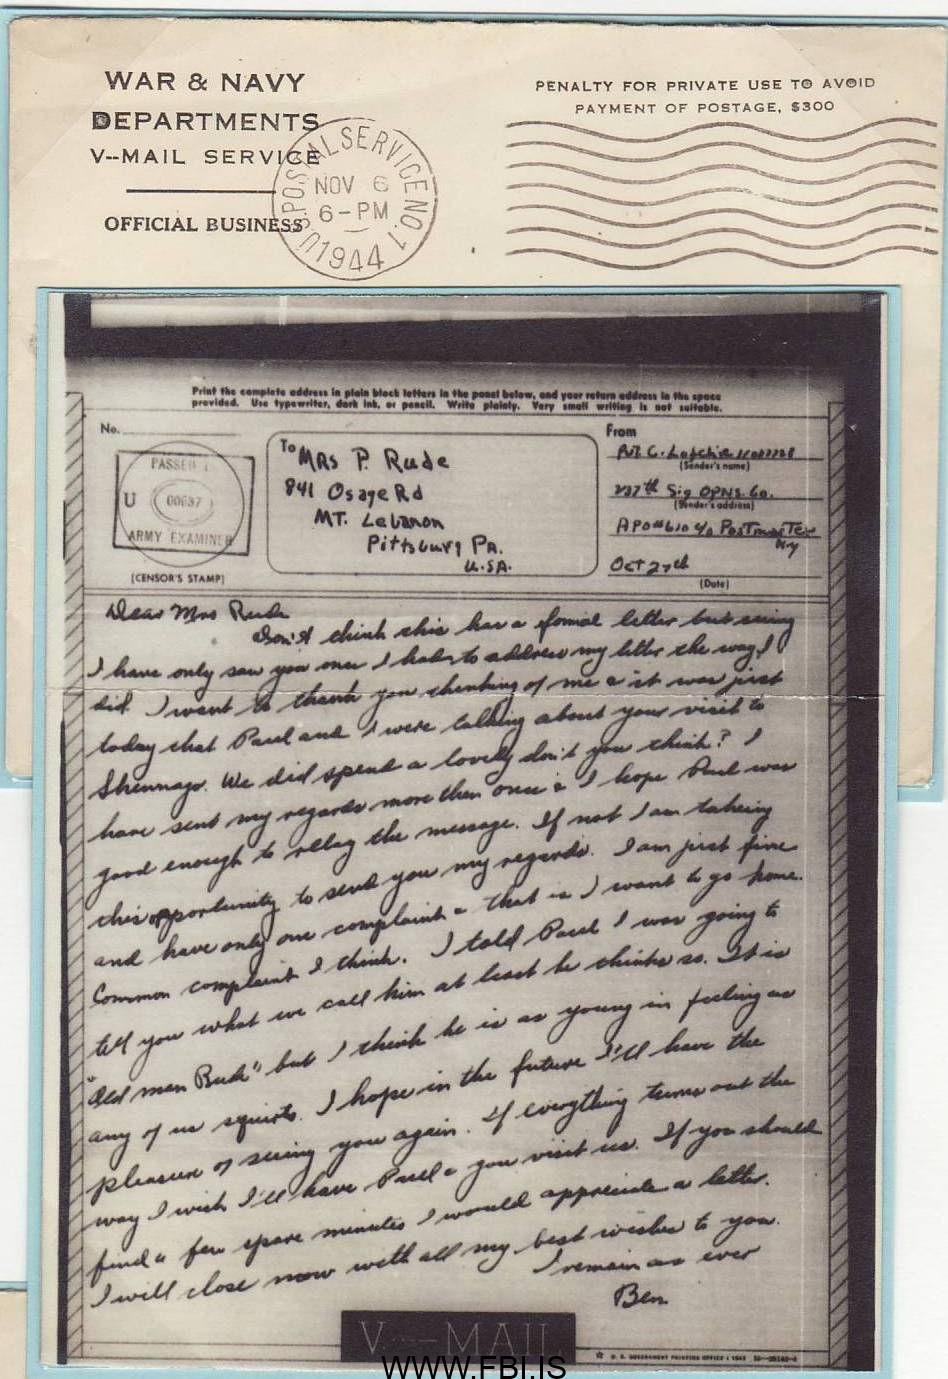 WAR & NAVY
DEPARTMENTS
V--MAIL SERVICE
OFFICIAL BUSINESS
U.S. POSTAL SERVICE NO. 1
NOV 6
6-PM
1944
PENALTY FOR PRIVATE USE TO AVOID
PAYMENT OF POSTAGE, $300
Print the complete address in plain block letters in the panel below, and your return address in the space
provided. Use typewriter, dark ink, or pencil. Write plainly. Very small writing is not suitable.
No.
PASSED
U 00637
ARMY EXAMINER
(CENSOR'S STAMP)
To
MRS P. Rude
841 Osage Rd
MT. Lebanon
Pittsburg PA.
U.S.A.
From
Pvt C.
(Sender's name)
237th Sig OPNS. Co.
(Sender's address)
APO #610 c/o PostmasTer
N.Y
Oct 27th
(Date)
Dear Mrs Rude
Don't think this has a formal letter but seeing
I have only saw you once I had to address my letter the way I
did. I want to thank you thinking of me & it was just
today that Paul and I were talking about your visit to
Shennago. We did spend a lovely don't you think? I
have sent my regards more then once & I hope Paul was
good enough to relay the message. If not I am takeing
this opportunity to send you my regards. I am just fine
and have only one complaint & that is I want to go home.
Common complaint I think. I told Paul I was going to
tell you what we call him at least he thinks so. It is
"Old man Rude" but I think he is as young in feeling as
any of us squirts. I hope in the future I'll have the
pleasure of seeing you again. If everything turns out the
way I wish I'll have Paul & you visit us. If you should
find a few spare minutes I would appreciate a letter.
I will close now with all my best wishes to you.
I remain as ever
Ben
V--MAIL
U. S. GOVERNMENT PRINTING OFFICE : 1943
WWW.FBI.IS